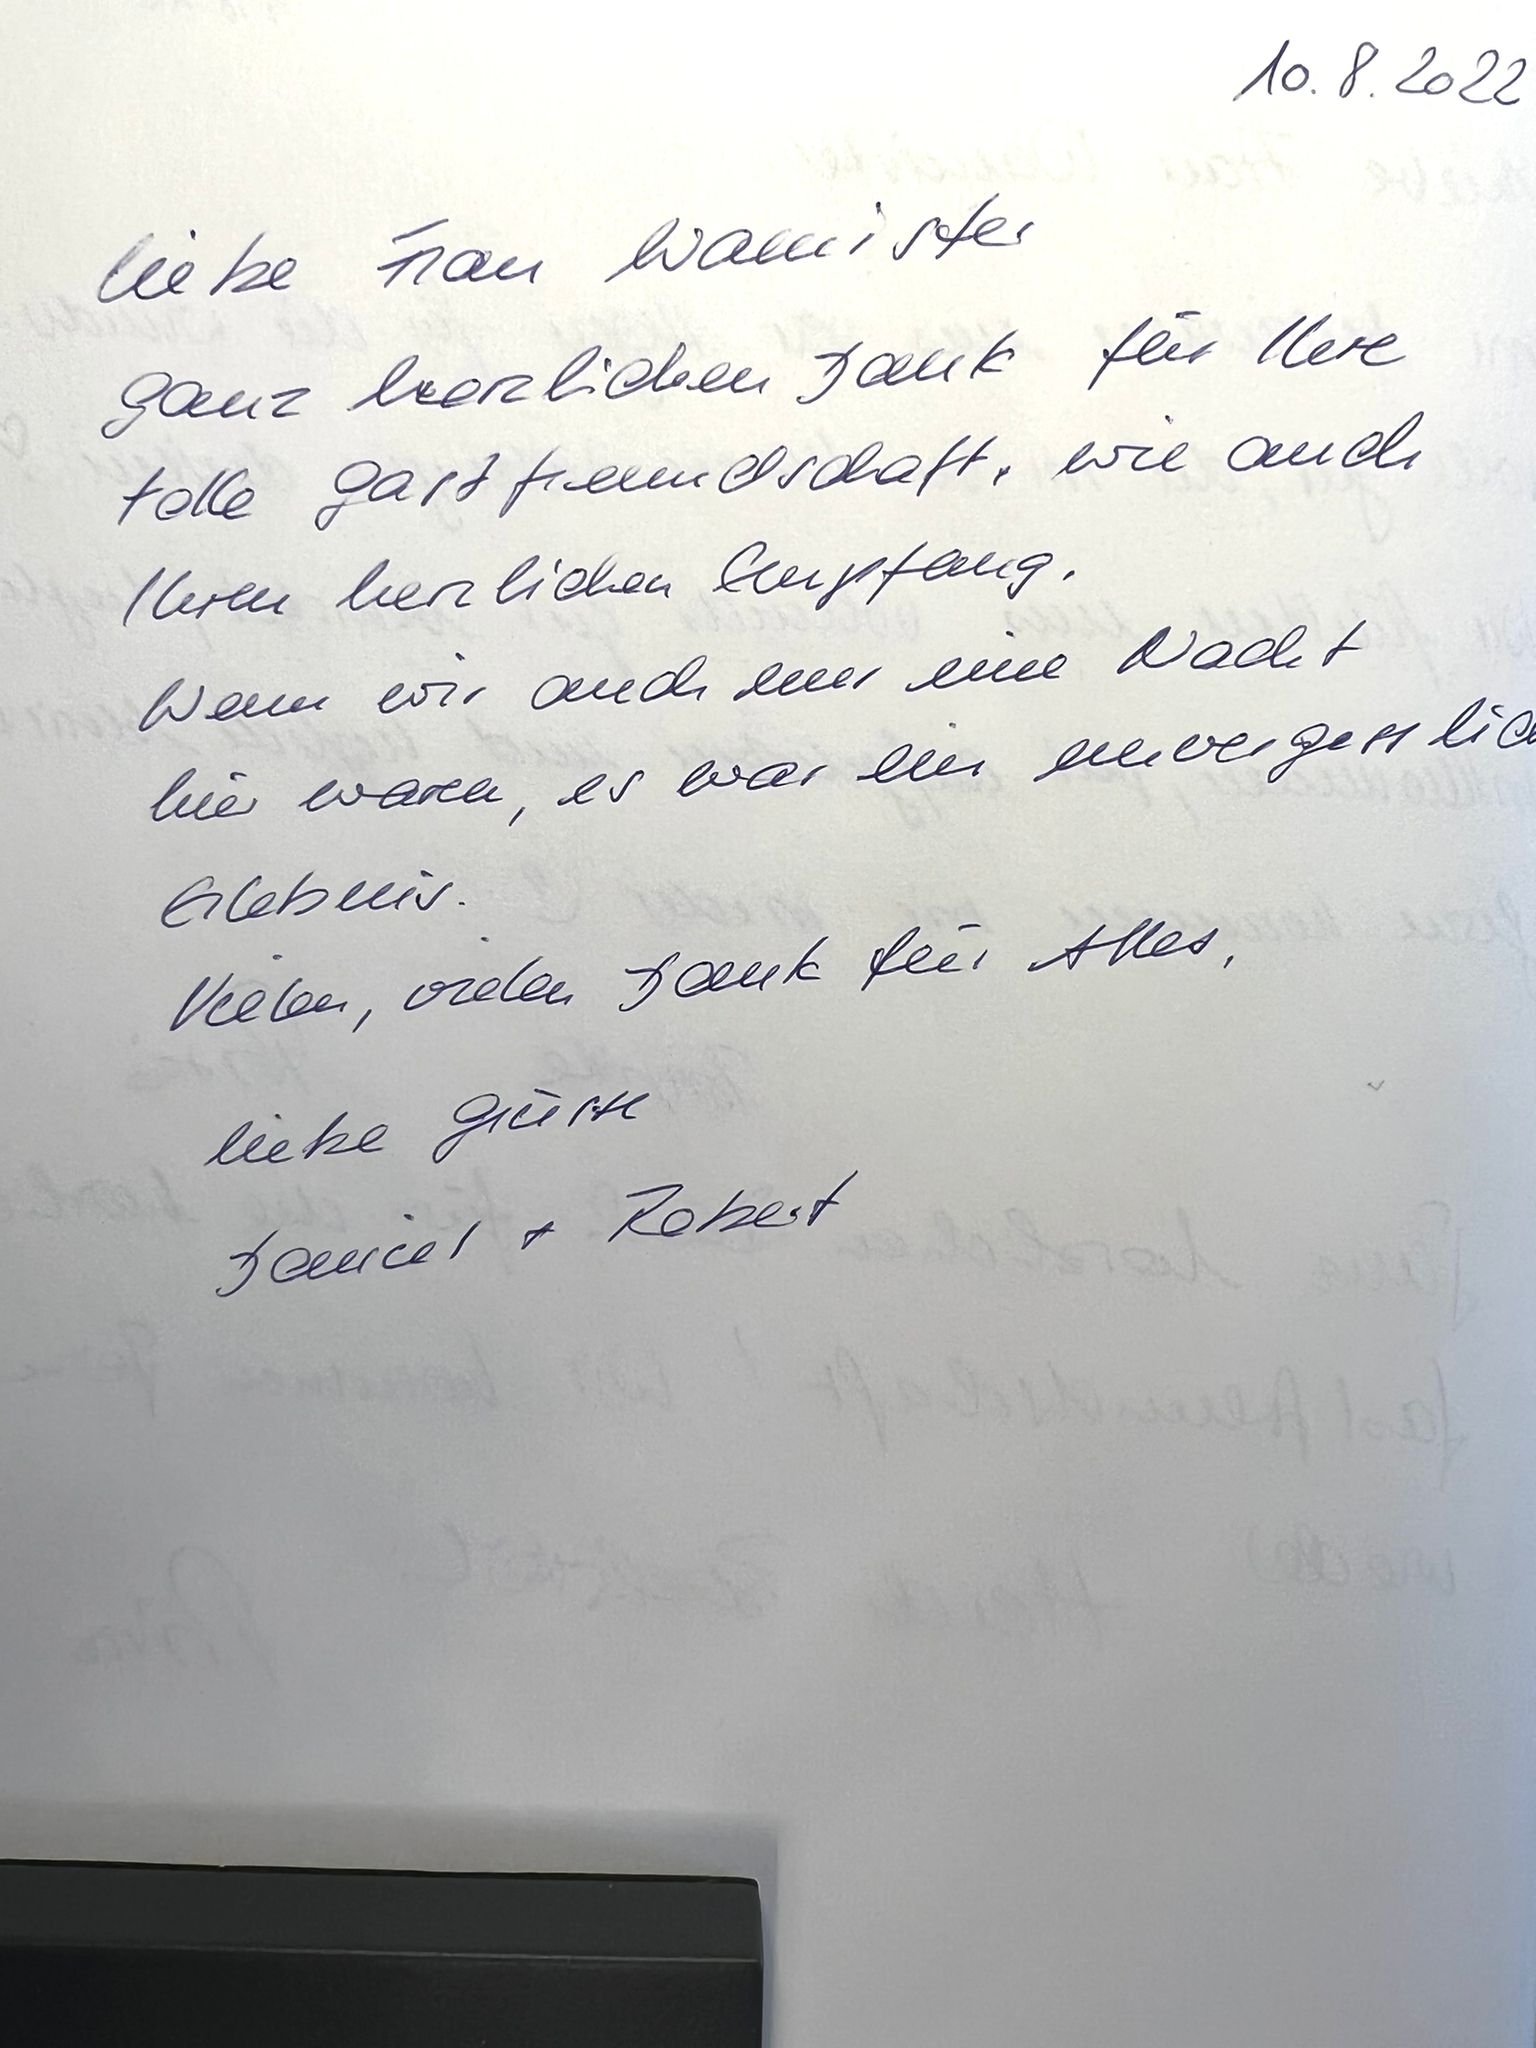 10.8.2022
liebe Frau Wannister
ganz herzlichen Dank für Ihre
tolle Gastfreundschaft, wie auch
Ihren herzlichen Empfang.
Wenn wir auch nur eine Nacht
hier waren, es war ein unvergesslich
Erlebnis.
Vielen, vielen Dank für Alles,
liebe Grüsse
Daniel + Robert